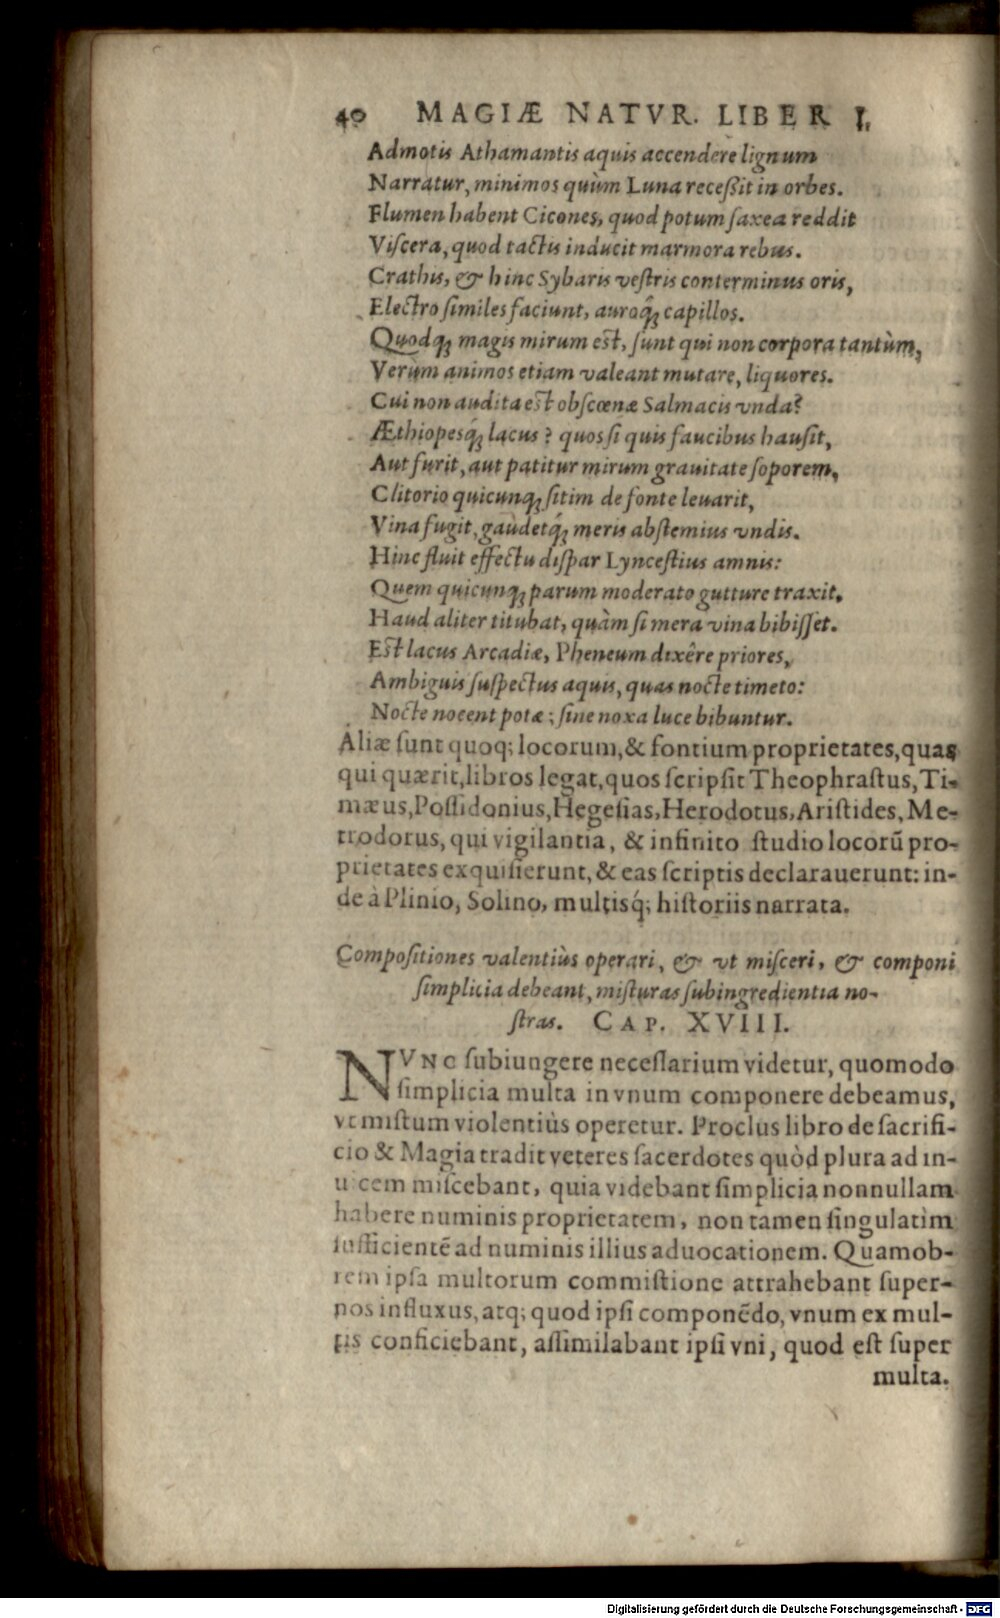 40 MAGIÆ NATVR. LIBER I.
Admotis Athamantis aquis accendere lignum
Narratur, minimos quùm Luna receßit in orbes.
Flumen habent Cicones, quod potum ſaxea reddit
Viſcera, quod tactis inducit marmora rebus.
Crathis, & hinc Sybaris veſtris conterminus oris,
Electro ſimiles faciunt, auroq́; capillos.
Quodq; magis mirum est, ſunt qui non corpora tantùm,
Verùm animos etiam valeant mutare, liquores.
Cui non audita est obſcœnæ Salmacis vnda?
Æthiopesq́; lacus? quos ſi quis faucibus hauſit,
Aut furit, aut patitur mirum grauitate ſoporem,
Clitorio quicunq; ſitim de fonte leuarit,
Vina fugit, gaudetq́; meris abſtemius vndis.
Hinc fluit effectu diſpar Lynceſtius amnis:
Quem quicunq; parum moderato gutture traxit,
Haud aliter titubat, quàm ſi mera vina bibiſſet.
Est lacus Arcadiæ, Pheneum dixêre priores,
Ambiguis ſuſpectus aquis, quas nocte timeto:
Nocte nocent potæ; ſine noxa luce bibuntur.
Aliæ ſunt quoq; locorum, & fontium proprietates, quas
qui quærit, libros legat, quos ſcripſit Theophraſtus, Ti-
mæus, Poſſidonius, Hegeſias, Herodotus, Ariſtides, Me-
trodorus, qui vigilantia, & infinito ſtudio locorũ pro-
prietates exquiſierunt, & eas ſcriptis declarauerunt: in-
de à Plinio, Solino, multisq́; hiſtoriis narrata.
Compoſitiones valentiùs operari, & vt miſceri, & componi
ſimplicia debeant, miſturas ſubingredientia no-
ſtras. CAP. XVIII.
NVNC ſubiungere neceſſarium videtur, quomodo
ſimplicia multa in vnum componere debeamus,
vt miſtum violentiùs operetur. Proclus libro de ſacrifi-
cio & Magia tradit veteres ſacerdotes quòd plura ad in-
uicem miſcebant, quia videbant ſimplicia nonnullam
habere numinis proprietatem, non tamen ſingulatim
ſufficientẽ ad numinis illius aduocationem. Quamob-
rem ipſa multorum commiſtione attrahebant ſuper-
nos influxus, atq; quod ipſi componẽdo, vnum ex mul-
tis conficiebant, aſſimilabant ipſi vni, quod eſt ſuper
multa.
Digitalisierung gefördert durch die Deutsche Forschungsgemeinschaft - DFG